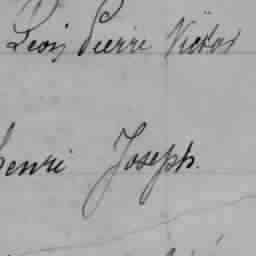 Léon Pierre Victor
henri Joseph.